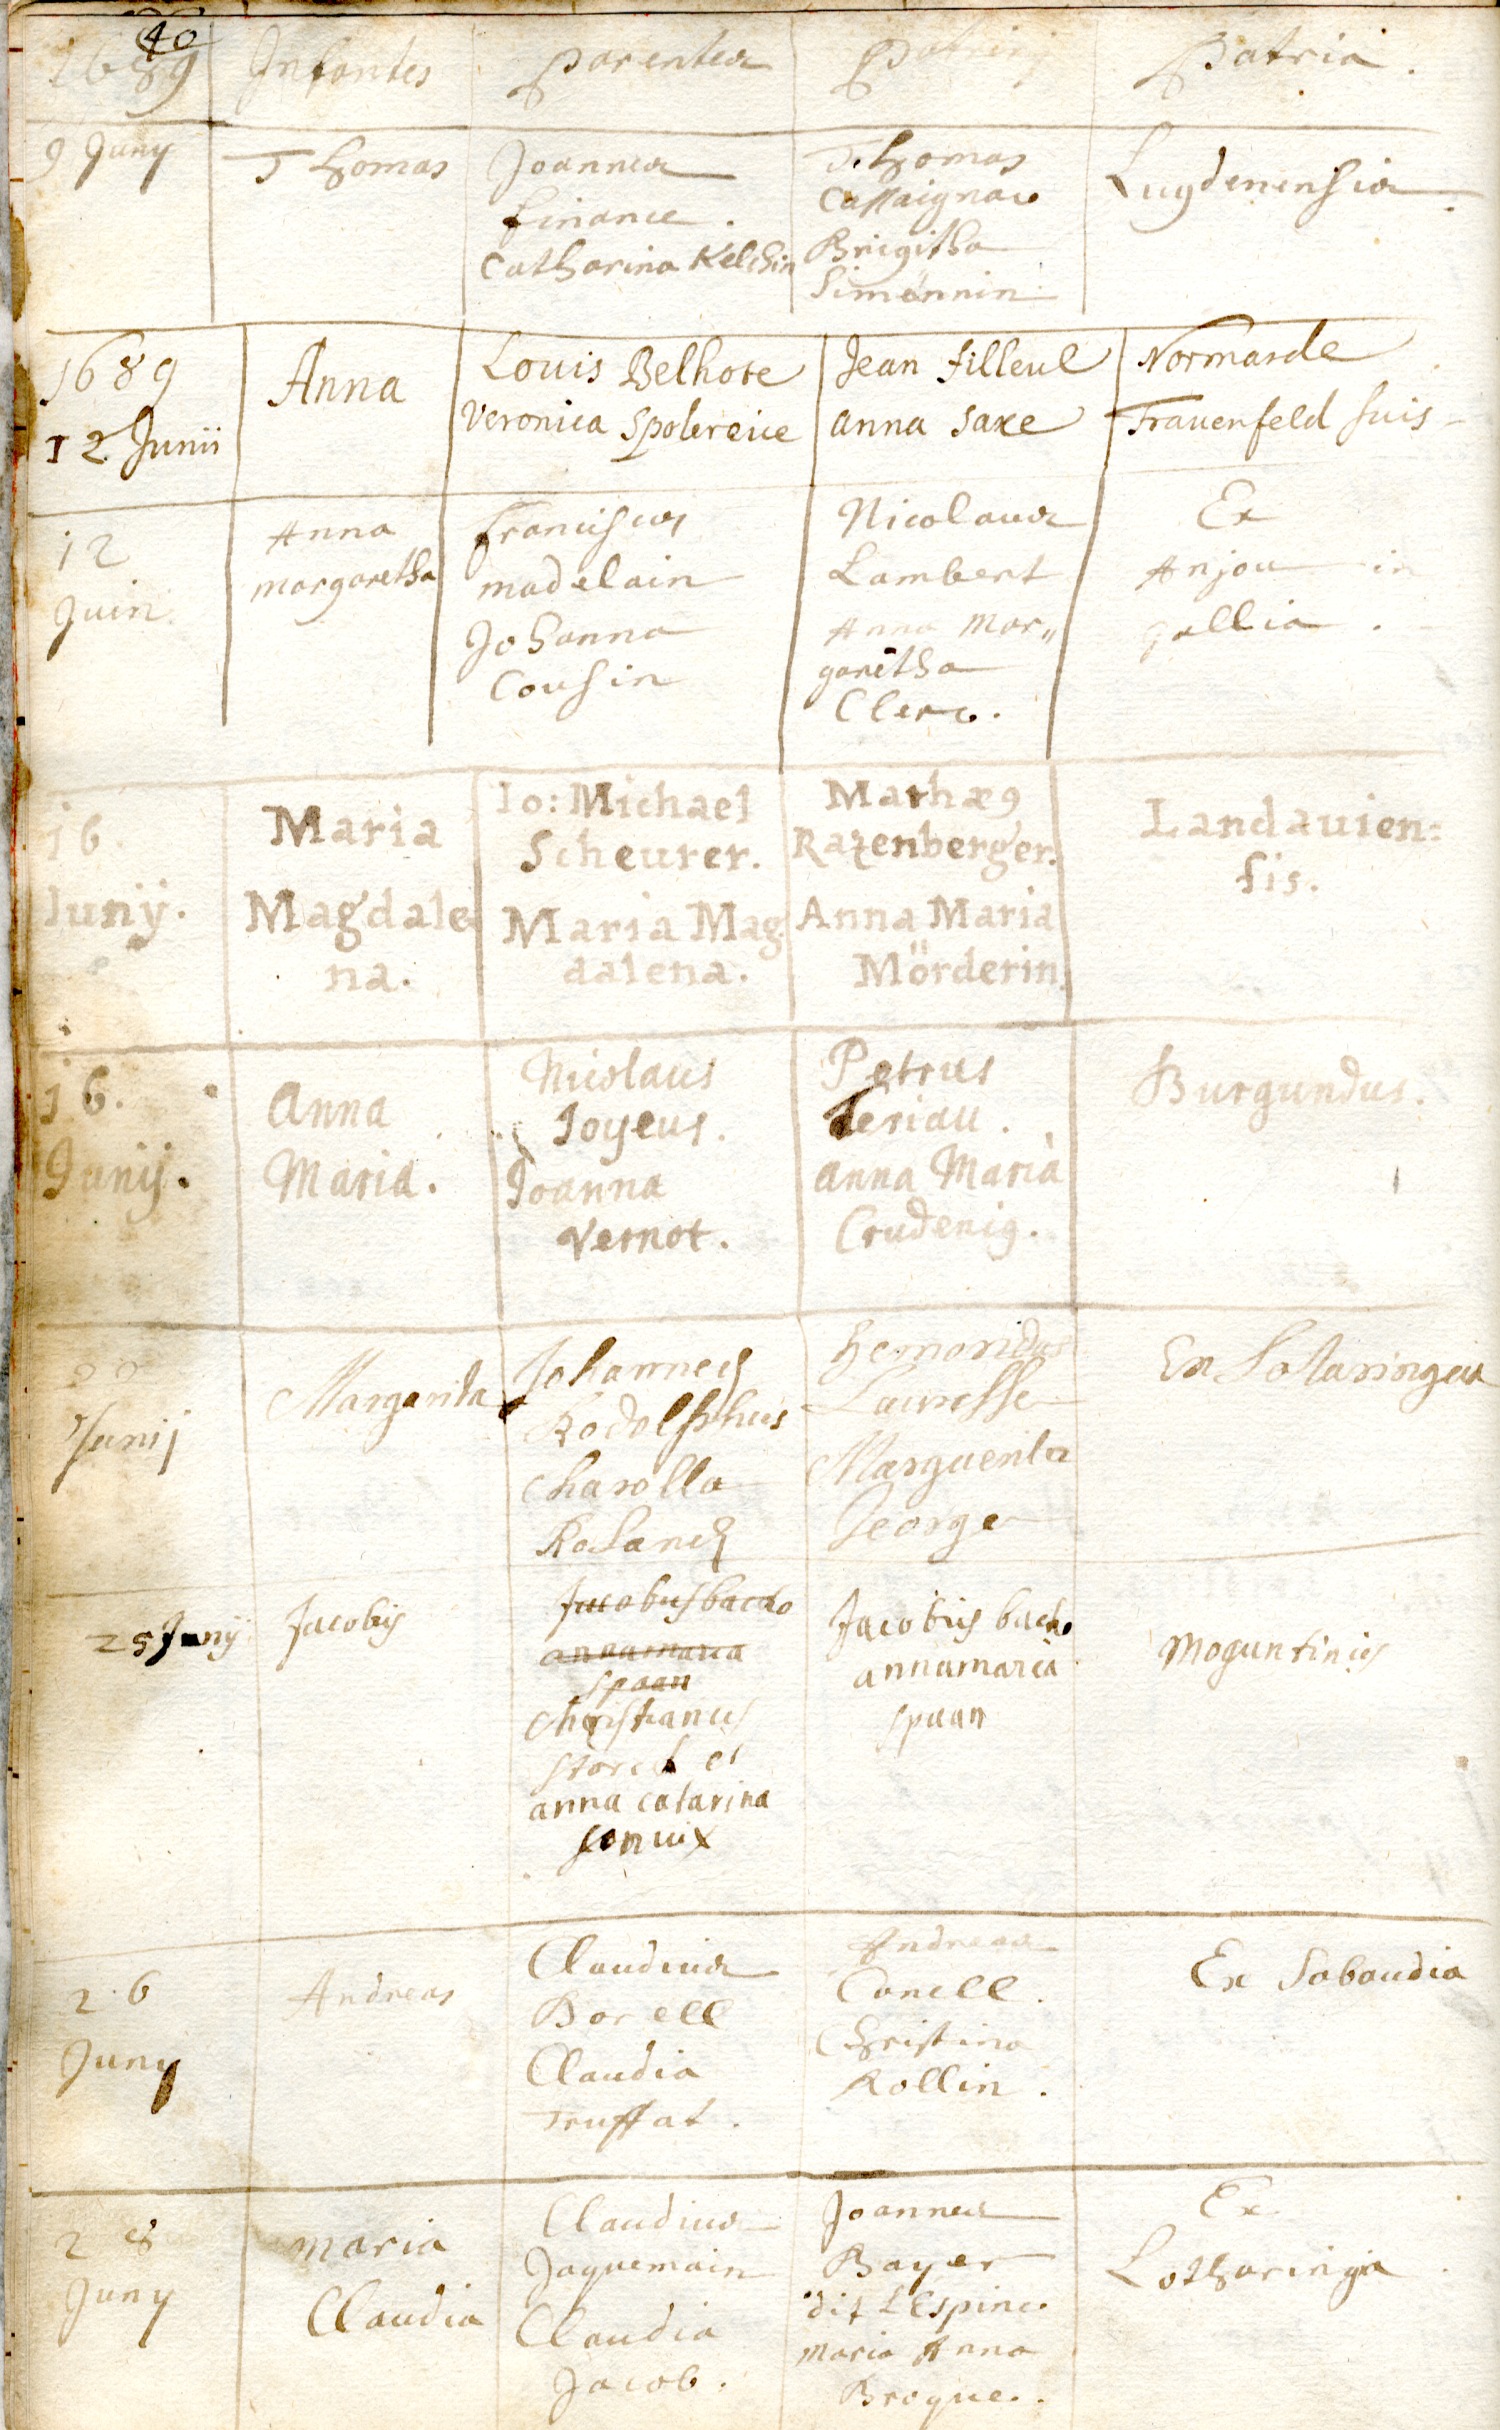 40
1689 Infantes Parentes Patrini Patria.
9 Juny
Thomas
Joannes
finance.
Catharina Kelchin
Thomas
Cassaignac
Brigitha
Simonnin
Lugdenensis
1689
12 Junii
Anna
Louis Belhote
Veronica Spolereice
Jean Filleul
anna Saxe
Normande
Frauenfeld suis-
12
Juin
Anna
margaretha
franciscus
madelain
Johanna
Cousin
Nicolaus
Lambert
Anna Mar„
garetha
Clerc.
Ex
Anjou in
gallia.
16.
Iunÿ.
Maria
Magdale
na.
Io: Michael
Scheurer.
Maria Mag
dalena.
Mathæ9
Razenberger.
Anna Maria
Mörderin
Landauien=
sis.
16.
Junij.
Anna
Maria.
Nicolaus
Joyeus.
Joanna
Vernot.
Petrus
Teriau.
Anna Maria
Crudenig.
Burgundus.
Junij
Margarita
Johannes
Rodolphus
Charolla
Rolands
Lauresse
Marguerita
George
Ex Lotaringea
25 Junij
Jacobus
Jacobus bacho
anna maria
spaan
Christianus
storch et
anna catarina
Jacobus bacho
anna maria
spaan
Moguntinus
26
Juny
Andreas
Claudius
Borell
Claudia
Truffat.
Andreas
Conell.
Christina
Rollin.
Ex Sabaudia
28
Juny
maria
Claudia
Claudius
Jaquemain
Claudia
Jacob.
Joannes
Bayer
dit L'Espine
Maria Anna
Broque.
Ex
Lotharingia.